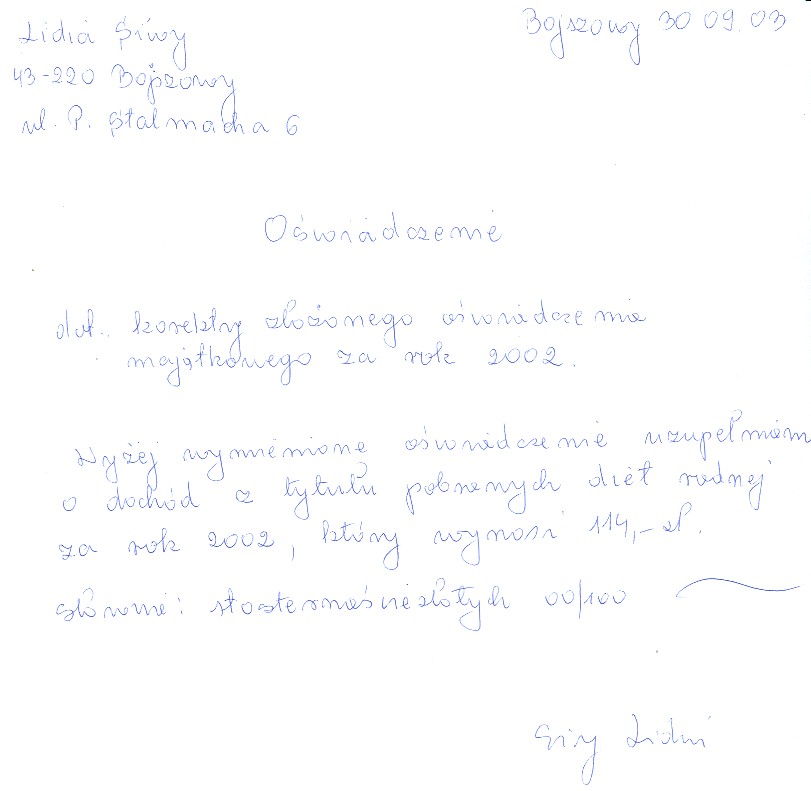 Lidia Siwy
Bojszowy 30 09.03
43-220 Bojszowy
ul. P. Stalmacha 6
Oświadczenie
dot. korekty złożonego oświadczenia
majątkowego za rok 2002.
Wyżej wymienione oświadczenie uzupełniam
o dochód z tytułu pobranych diet radnej
za rok 2002, który wynosi 114,- zł.
słownie: stoczternaściezłotych 00/100
Siwy Lidia